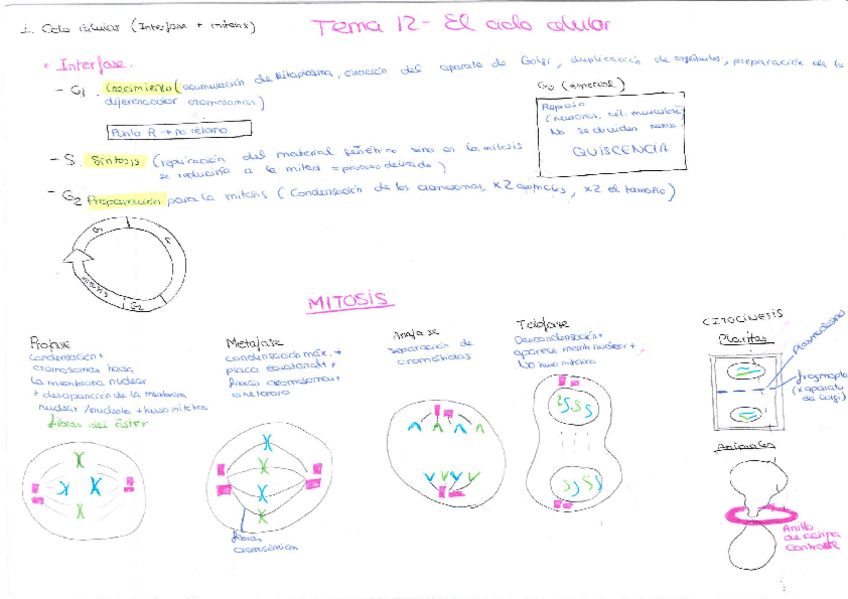 1. Ciclo celular (Interfase + mitosis)
Tema 12- El ciclo celular
• Interfase.
- G1. Crecimiento (acumulación de citoplasma, creación del aparato de Golgi, duplicación de orgánulos, preparación de la
diferenciador cromosomas)
Punto R → no retorno
G0 (especial)
Reposo
(neuronas, cél. musculares
No se dividen nunca
QUISCENCIA
- S. Síntesis (replicación del material genético sino en la mitosis
se reduciría a la mitad = proceso delicado)
- G2 Preparación para la mitosis (Condensación de los cromosomas, x2 , x2 el tamaño)
G1
S
G2
mitosis
MITOSIS
Profase
Condensación +
cromosomas hacia
la membrana nuclear
+ desaparición de la membrana
nuclear / nucleolo + huso mitótico
fibras del áster
Metafase
condensación máx. +
placa ecuatorial +
fibras cromosomas +
cinetocoro
fibras
cromosómicas
Anafase
separación de
cromátidas
Telofase
Descondensación +
aparece memb nuclear +
No huso mitótico
CITOCINESIS
Plantas
Plasmodesmo
fragmoplasto
(x aparato
de Golgi)
Animales
Anillo
de actina
contráctil